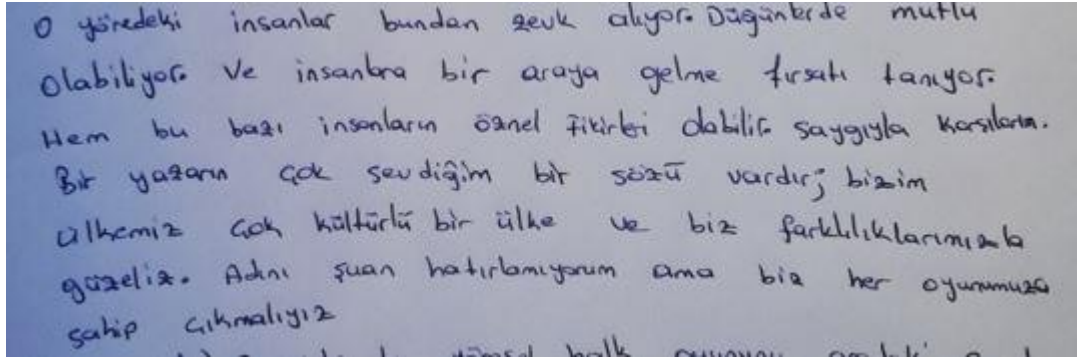 O yöredeki insanlar bundan zevk alıyor. Düğünlerde mutlu
Olabiliyor. Ve insanlara bir araya gelme fırsatı tanıyor.
Hem bu bazı insanların öznel fikirleri olabilir saygıyla karşılarım.
Bir yazarın çok sevdiğim bir sözü vardır; bizim
ülkemiz çok kültürlü bir ülke ve biz farklılıklarımızla
güzeliz. Adını şuan hatırlamıyorum ama biz her oyunumuza
sahip çıkmalıyız
halk